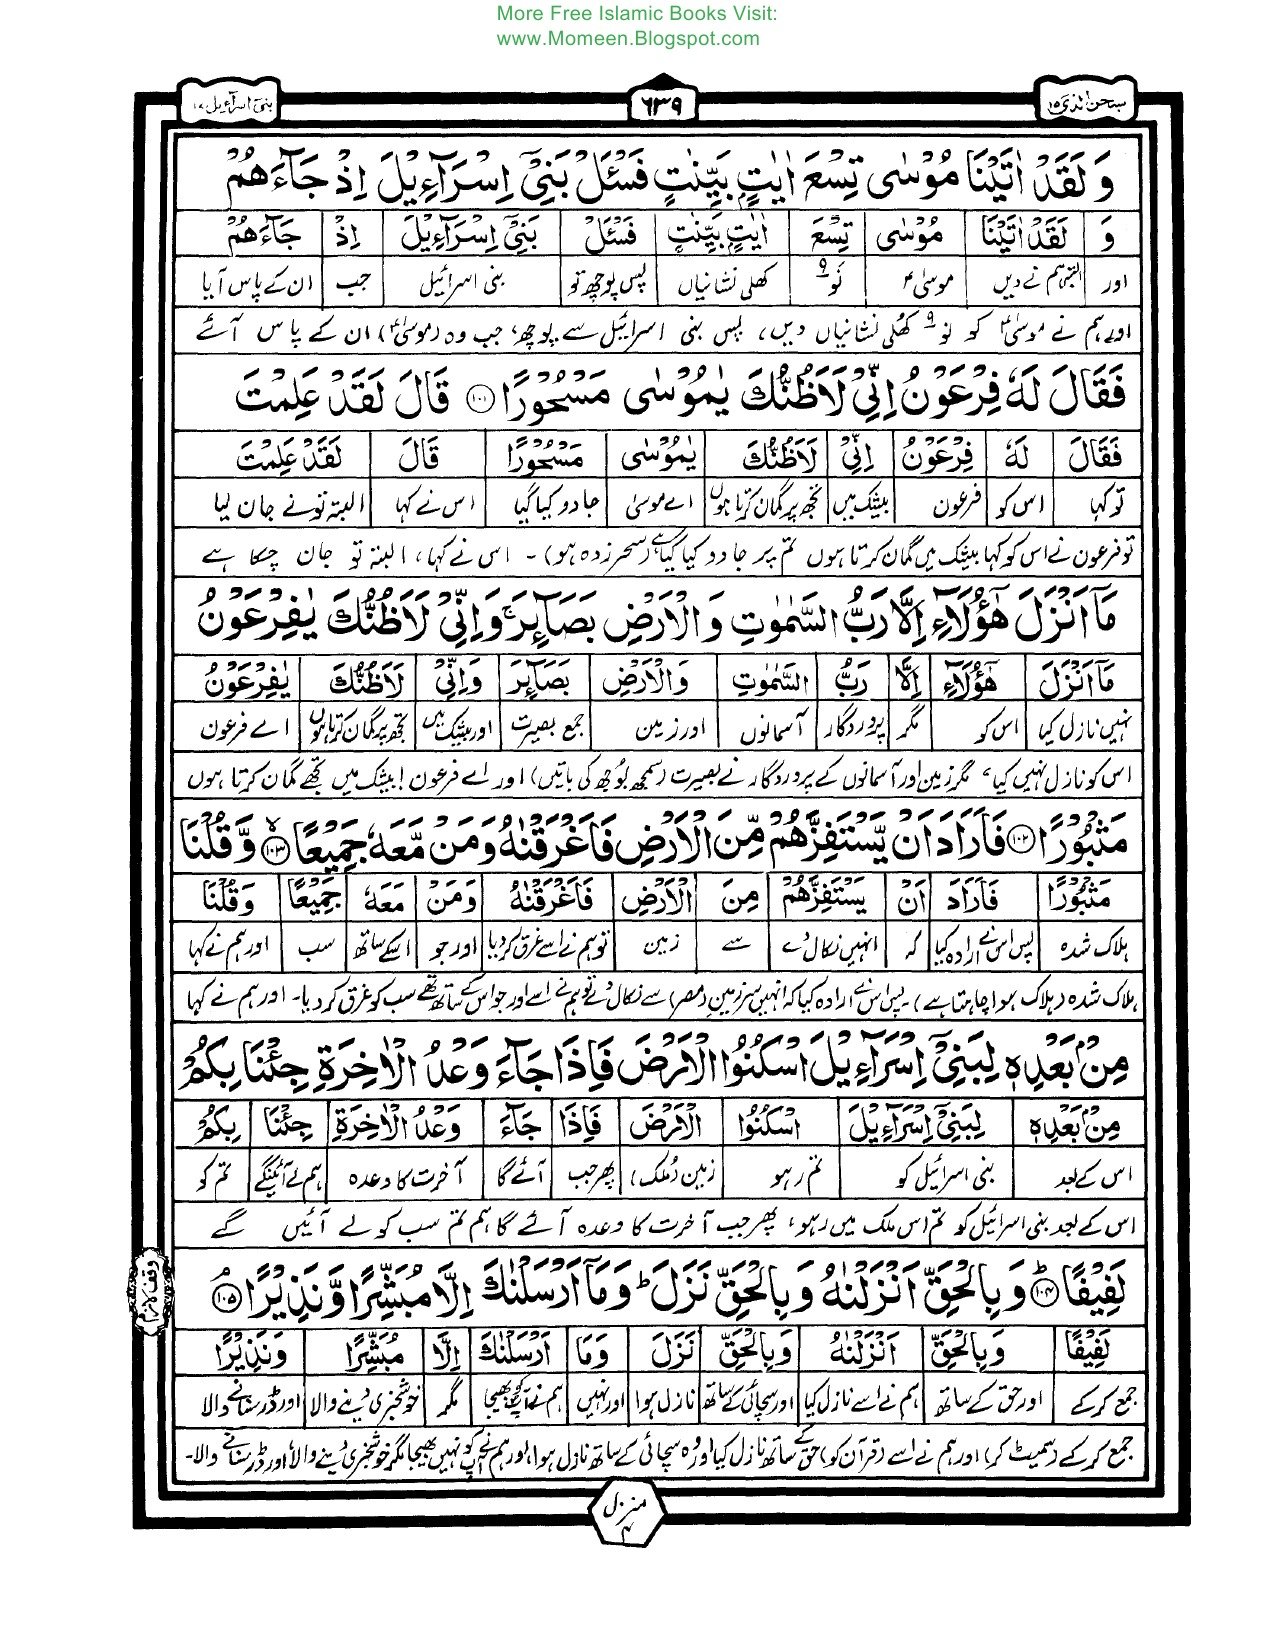 More Free Islamic Books Visit:
www.Momeen.Blogspot.com
سبحن الذی ۱۵
۶۳۹
بنیٓ اسرآءیل ۱۷
وَ لَقَدْ اٰتَیْنَا مُوْسٰی تِسْعَ اٰیٰتٍۭ بَیِّنٰتٍ فَسْـَٔلْ بَنِیْۤ اِسْرَآءِیْلَ اِذْ جَآءَهُمْ
وَ | لَقَدْ اٰتَیْنَا | مُوْسٰی | تِسْعَ | اٰیٰتٍۭ بَیِّنٰتٍ | فَسْـَٔلْ | بَنِیْۤ اِسْرَآءِیْلَ | اِذْ | جَآءَهُمْ
اور | البتہ ہم نے دیں | موسیٰؑ | نو۹ | کھلی نشانیاں | پس پوچھ تو | بنی اسرائیل | جب | ان کے پاس آیا
اور ہم نے موسیٰؑ کو نو۹ کھلی نشانیاں دیں، پس بنی اسرائیل سے پوچھ، جب وہ (موسیٰؑ) ان کے پاس آئے
فَقَالَ لَهٗ فِرْعَوْنُ اِنِّیْ لَاَظُنُّكَ یٰمُوْسٰی مَسْحُوْرًا ۝۱۰۱ قَالَ لَقَدْ عَلِمْتَ
فَقَالَ | لَهٗ | فِرْعَوْنُ | اِنِّیْ | لَاَظُنُّكَ | یٰمُوْسٰی | مَسْحُوْرًا | قَالَ | لَقَدْ عَلِمْتَ
تو کہا | اس کو | فرعون | بیشک میں | تجھ پر گمان کرتا ہوں | اے موسیٰ | جادو کیا گیا | اس نے کہا | البتہ تو نے جان لیا
تو فرعون نے اس کو کہا بیشک میں گمان کرتا ہوں تم پر جادو کیا گیا ہے (سحر زدہ ہو)۔ اس نے کہا، البتہ تو جان چکا ہے
مَاۤ اَنْزَلَ هٰۤؤُلَآءِ اِلَّا رَبُّ السَّمٰوٰتِ وَالْاَرْضِ بَصَآئِرَ ۚ وَاِنِّیْ لَاَظُنُّكَ یٰفِرْعَوْنُ
مَاۤ اَنْزَلَ | هٰۤؤُلَآءِ | اِلَّا | رَبُّ | السَّمٰوٰتِ | وَالْاَرْضِ | بَصَآئِرَ | وَاِنِّیْ | لَاَظُنُّكَ | یٰفِرْعَوْنُ
نہیں نازل کیا | اس کو | مگر | پروردگار | آسمانوں | اور زمین | جمع بصیرت | اور بیشک میں | تجھ پر گمان کرتا ہوں | اے فرعون
اس کو نازل نہیں کیا، مگر زمین اور آسمانوں کے پروردگار نے بصیرت (سمجھ بوجھ کی باتیں) اور اے فرعون! بیشک میں تجھے گمان کرتا ہوں
مَثْبُوْرًا ۝۱۰۲ فَاَرَادَ اَنْ یَّسْتَفِزَّهُمْ مِّنَ الْاَرْضِ فَاَغْرَقْنٰهُ وَمَنْ مَّعَهٗ جَمِیْعًا ۝۱۰۳ۙ وَّقُلْنَا
مَثْبُوْرًا | فَاَرَادَ | اَنْ | یَسْتَفِزَّهُمْ | مِنَ | الْاَرْضِ | فَاَغْرَقْنٰهُ | وَمَنْ | مَعَهٗ | جَمِیْعًا | وَقُلْنَا
ہلاک شدہ | پس اس نے ارادہ کیا | کہ | انہیں نکال دے | سے | زمین | تو ہم نے اسے غرق کردیا | اور جو | اسکے ساتھ | سب | اور ہم نے کہا
ہلاک شدہ (ہلاک ہوا چاہتا ہے)۔ پس اس نے ارادہ کیا کہ انہیں سرزمین (مصر) سے نکال دے تو ہم نے اسے اور جو اس کے ساتھ تھے سب کو غرق کردیا۔ اور ہم نے کہا
مِنْۢ بَعْدِهٖ لِبَنِیْۤ اِسْرَآءِیْلَ اسْكُنُوا الْاَرْضَ فَاِذَا جَآءَ وَعْدُ الْاٰخِرَةِ جِئْنَا بِكُمْ
مِنْۢ بَعْدِهٖ | لِبَنِیْۤ اِسْرَآءِیْلَ | اسْكُنُوا | الْاَرْضَ | فَاِذَا | جَآءَ | وَعْدُ الْاٰخِرَةِ | جِئْنَا | بِكُمْ
اس کے بعد | بنی اسرائیل کو | تم رہو | زمین (ملک) | پھر جب | آئے گا | آخرت کا وعدہ | ہم لے آئینگے | تم کو
اس کے بعد بنی اسرائیل کو تم اس ملک میں رہو، پھر جب آخرت کا وعدہ آئے گا ہم تم سب کو لے آئیں گے
لَفِیْفًا ۝۱۰۴ؕ وَبِالْحَقِّ اَنْزَلْنٰهُ وَبِالْحَقِّ نَزَلَ ؕ وَمَاۤ اَرْسَلْنٰكَ اِلَّا مُبَشِّرًا وَّنَذِیْرًا ۝۱۰۵ۘ
وقف لازم
لَفِیْفًا | وَبِالْحَقِّ | اَنْزَلْنٰهُ | وَبِالْحَقِّ | نَزَلَ | وَمَا | اَرْسَلْنٰكَ | اِلَّا | مُبَشِّرًا | وَنَذِیْرًا
جمع کرکے | اور حق کے ساتھ | ہم نے اسے نازل کیا | اور سچائی کے ساتھ | نازل ہوا | اور نہیں | ہم نے آپکو بھیجا | مگر | خوشخبری دینے والا | اور ڈر سنانے والا
جمع کرکے (سمیٹ کر) اور ہم نے اسے (قرآن کو) حق کے ساتھ نازل کیا اور وہ سچائی کے ساتھ نازل ہوا، اور ہم نے آپ کو نہیں بھیجا مگر خوشخبری دینے والا اور ڈر سنانے والا۔
منزل ۴